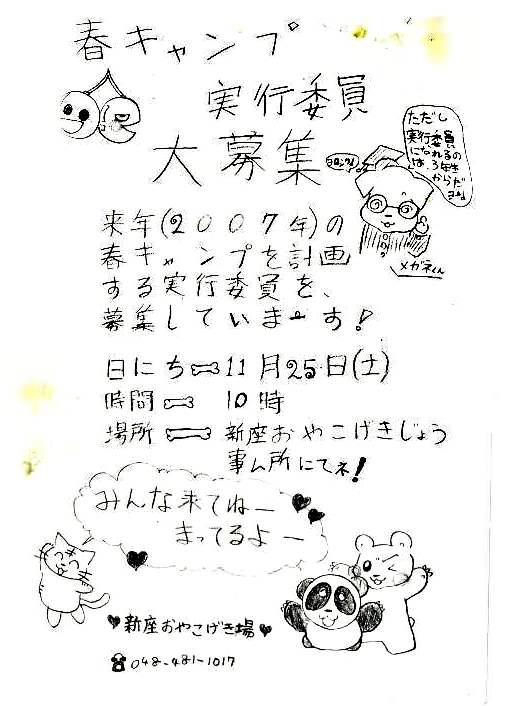 春キャンプ
実行委員
大募集
ただし
実行委員
になれるの
は、3年生
からだ
ヨ!!
メガネくん
来年(2007年)の
春キャンプを計画
する実行委員を、
募集していまーす!
日にち 11月25日(土)
時間 10時
場所 新座おやこげきじょう
事ム所にてネ!
みんな来てねー
まってるよー
♥新座おやこげき場♥
☎048-481-1017